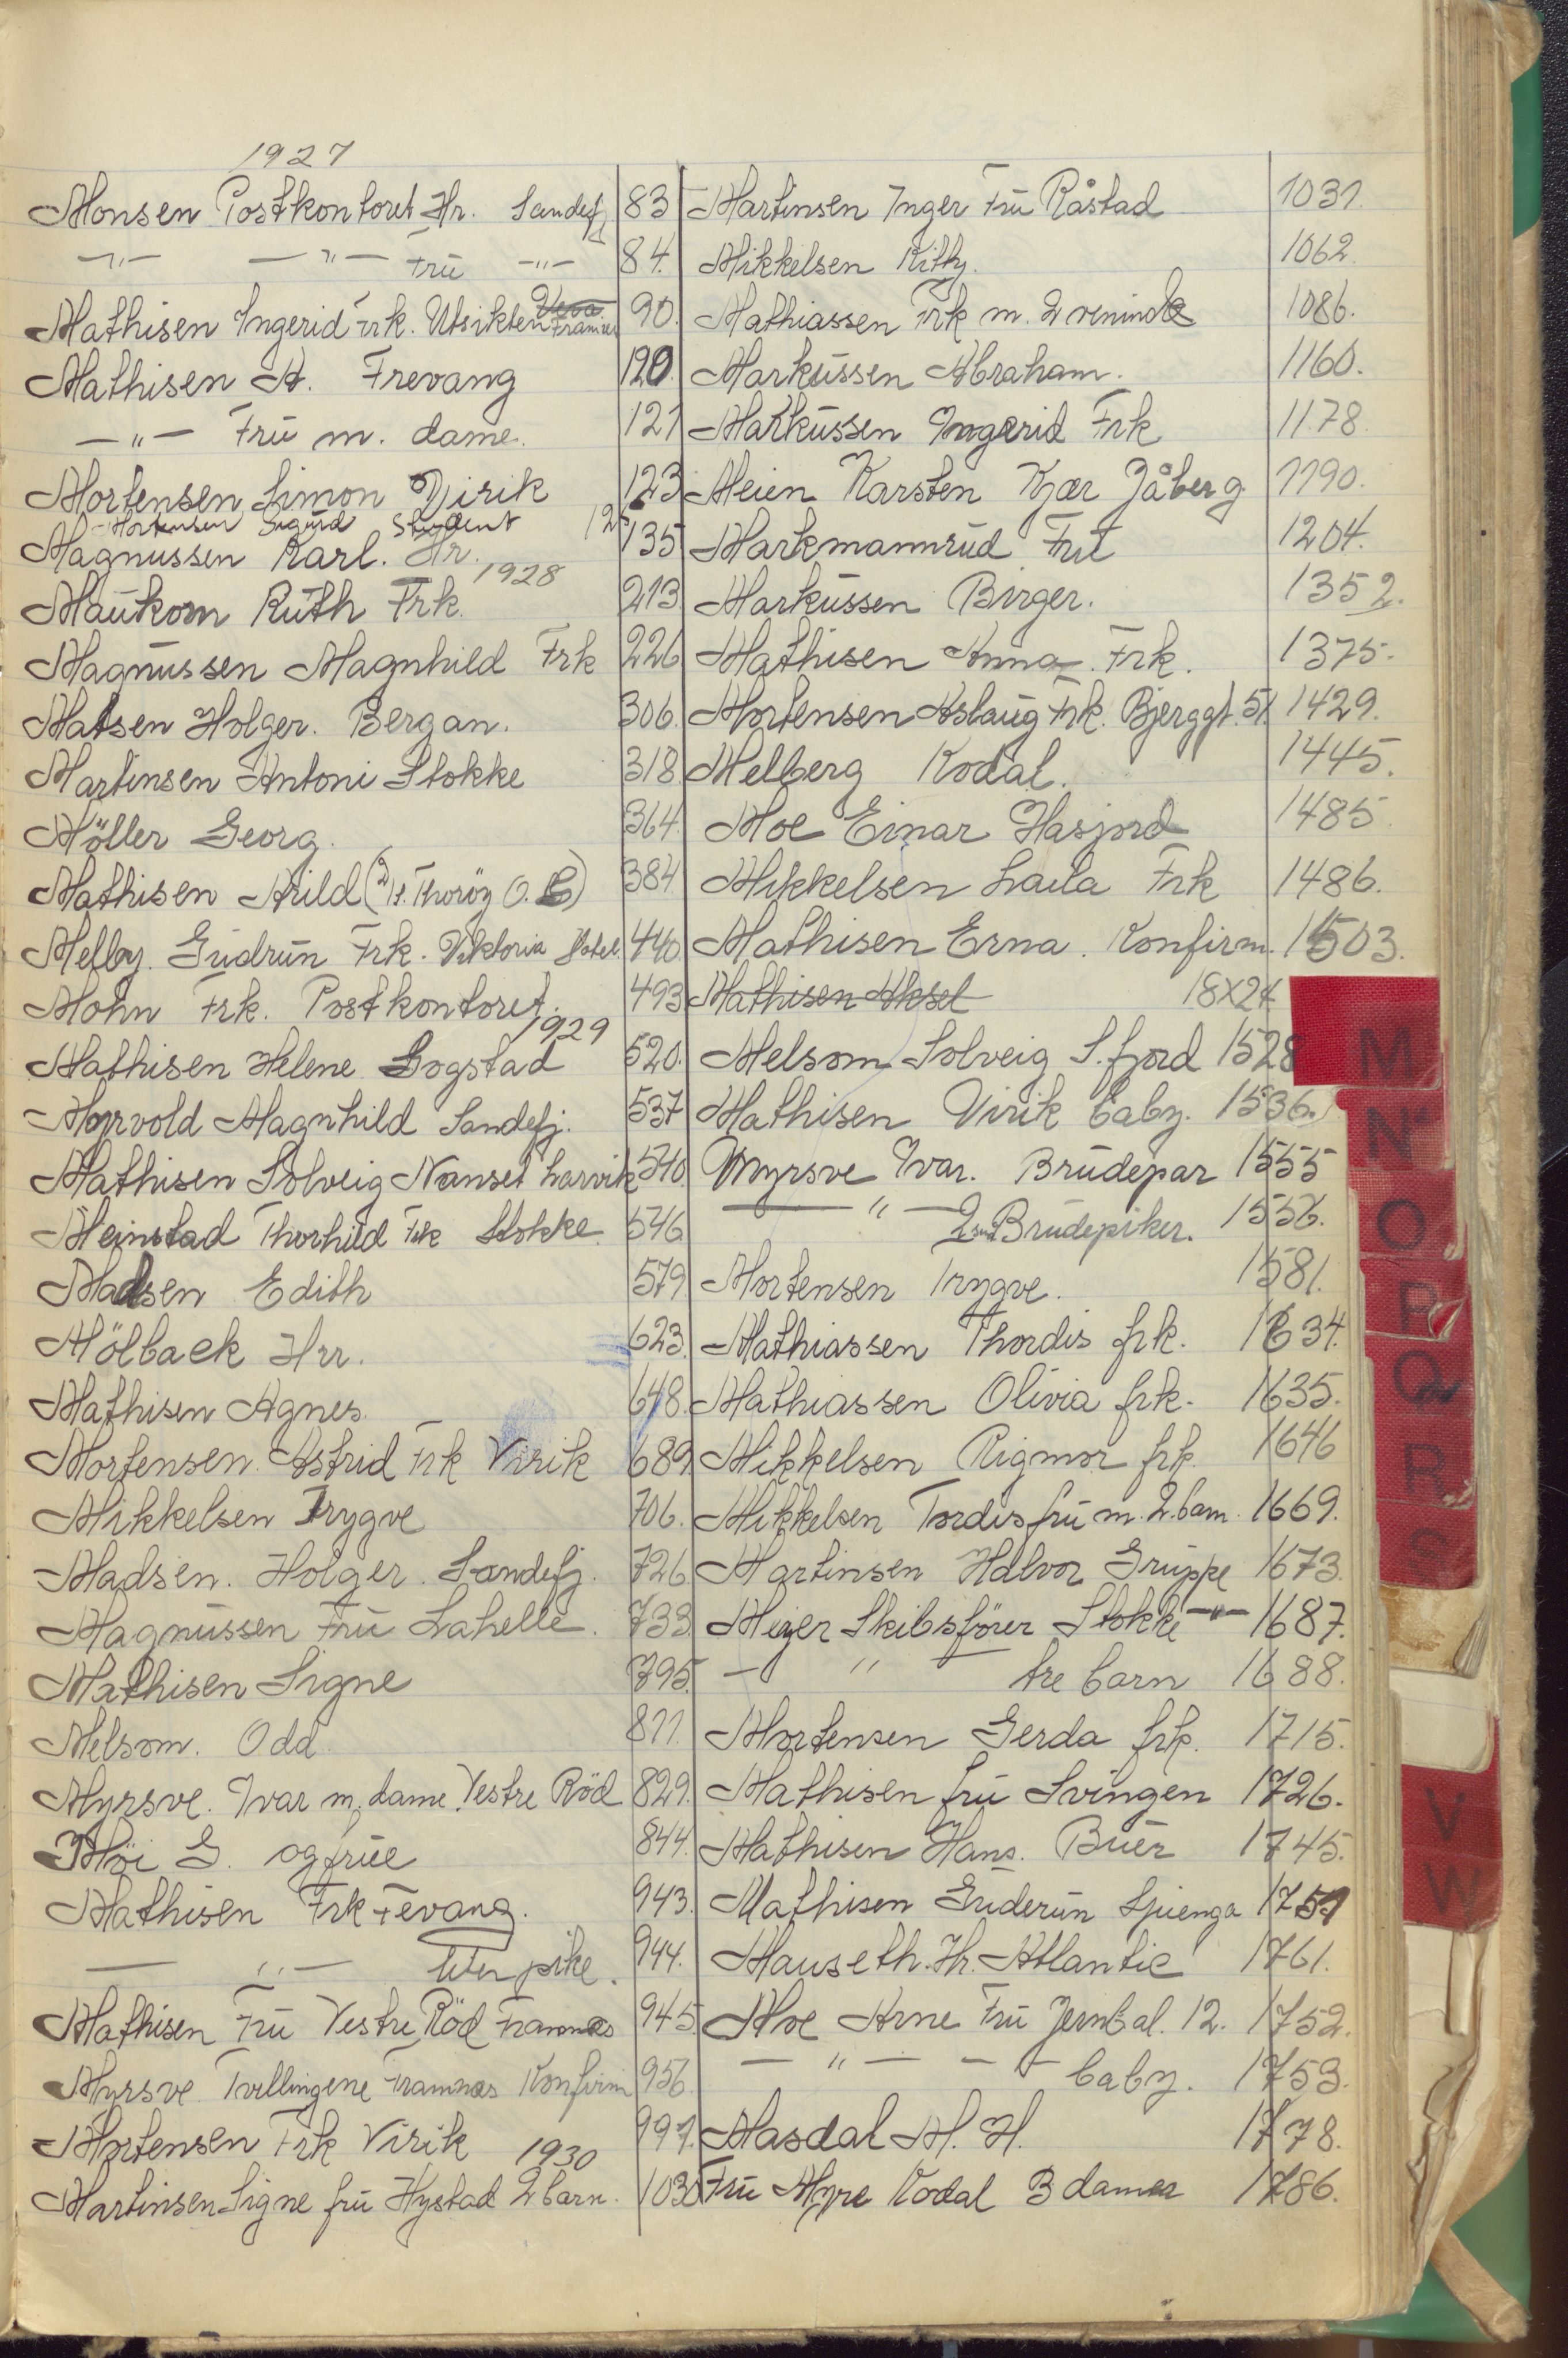 1927
Monsen Postkontoret Hr. Sandefj 83
-"- -"- Frū -"- 84.
Mathisen Ingerid Frk. Utsikten Framnes 90.
Mathisen A. Frevang 120.
-"- Frū m. dame. 121
Mortensen Simon Virik 123
Mortensen Sigurd Student 125
Magnussen Karl. Hr. 135
1928
Maūkom Rūth Frk. 213
Magnūssen Magnhild Frk 226
Matsen Holger. Bergan. 306.
Martinsen Antoni Stokke 318
Möller Georg. 364.
Mathisen Arild (2 St. Thoröy O. B) 384
Melby. Gūdrūn Frk. Viktoria Hotel. 440.
Mohn Frk. Postkontoret. 493
1929
Mathisen Helene Gogstad 520.
Myrvold Magnhild Sandefj. 537
Mathisen Solveig Nanset Larvik 540.
Meinstad Thorhild Frk Stokke. 546
Madsen Edith 579
Mölback Hrr. 623.
Mathisen Agnes. 648.
Mortensen. Astrid Frk Virik 689.
Mikkelsen Trygve 706.
Madsen. Holger. Sandefj. 726.
Magnūssen Frū Lahelle. 733.
Mathisen Signe 795.
Melsom. Odd 811.
Myrsve. Ivar m. dame. Vestre Röd 829.
Möi G. og frūe 844.
Mathisen Frk Fevang. 943.
— "— liten pike. 944.
Mathisen Frū Vestre Röd Framnæs 945
Myrsve Tvillingene Framnæs Konfirm 956.
Mortensen Frk Virik 991.
1930
Martinsen Signe frū Hystad 2 barn. 1030
Martinsen Inger Frū Råstad 1031.
Mikkelsen Kitty. 1062.
Mathiassen Frk m. 2 veninde 1086.
Markūssen Abraham. 1160.
Markūssen Ingerid Frk 1178.
Meien Karsten Kjær Jåberg 1190.
Markmannrūd Frū 1204.
Markūssen Birger. 1352.
Mathisen Anna. Frk. 1375.
Mortensen Aslaūg Frk. Bjerggt. 51 1429.
Melberg Kodal. 1445.
Moe Einar Hasjord 1485.
Mikkelsen Laila Frk 1486.
Mathisen Erna. Konfirm. 1503.
Mathisen Aksel 18x24
Melsom Solveig S. fjord 1528
Mathisen Virik baby. 1536.
Myrsve Ivar. Brūdepar 1555
— "— 2 små Brūdepiker. 1556.
Mortensen Trygve. 1581.
Mathiassen Thordis frk. 1634.
Mathiassen Olivia frk. 1635.
Mikkelsen Rigmor frk. 1646
Mikkelsen Tordis frū m. 2. barn. 1669.
Martinsen Halvor Grūppe 1673.
Meyer Skibsförer Stokke -"- 1687.
— " tre barn 1688.
Mortensen Gerda frk. 1715.
Mathisen frū Svingen 1726.
Mathisen Hans. Būer 1745.
Mathisen Guderūn Sjuenga 1751
Mauseth. Hr. Atlantic 1761.
Moe Arne Frū Jernbal. 12. 1752.
— " — — baby. 1753.
Masdal M. H. 1778.
Frū Myre Kodal 3 damer 1786.
M
N
O
P
Q
R
S
V
W